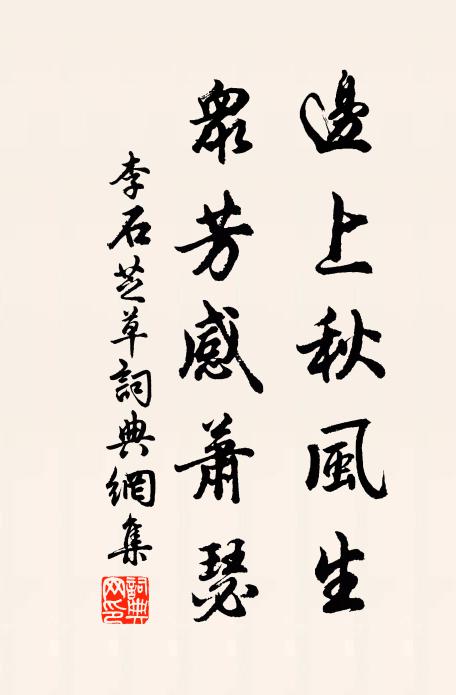 邊上秋風生
眾芳感蕭瑟
李石芝草詞典網集
詞典網印